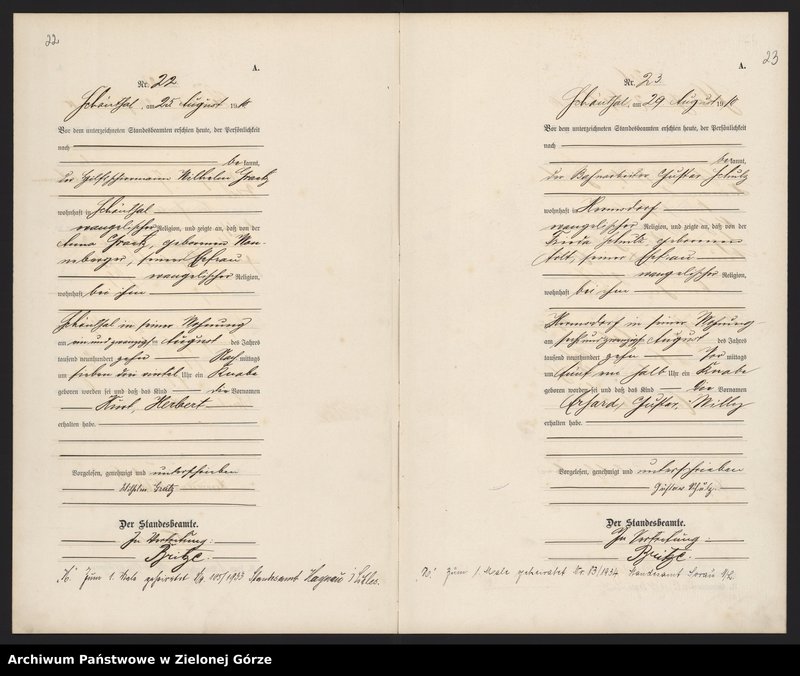 22
A.
Nr. 22
Schönthal, am 25 August 1910
Vor dem unterzeichneten Standesbeamten erschien heute, der Persönlichkeit
nach
be kannt,
der Wilhelm
wohnhaft in Schönthal
evangelischer Religion, und zeigte an, daß von der
Anna geborenen
seiner Ehefrau
evangelischer Religion,
wohnhaft bei ihm
Schönthal in seiner Wohnung
am August des Jahres
tausend neunhundert zehn Nach mittags
um sieben drei viertel Uhr ein Knabe
geboren worden sei und daß das Kind die Vornamen
Kurt, Herbert
erhalten habe.
Vorgelesen, genehmigt und unterschrieben
Wilhelm
Der Standesbeamte.
In Vertretung:
Britze
Zum 1. Male geheiratet Nr. 105/1933 Standesamt
23
A.
Nr. 23
Schönthal, am 29 August 1910
Vor dem unterzeichneten Standesbeamten erschien heute, der Persönlichkeit
nach
be kannt,
der Bahnarbeiter Gustav Schulz
wohnhaft in
evangelischer Religion, und zeigte an, daß von der
Schulz geborenen
seiner Ehefrau
evangelischer Religion,
wohnhaft bei ihm
in seiner Wohnung
am sechsundzwanzigsten August des Jahres
tausend neunhundert zehn Vor mittags
um fünf ein halb Uhr ein Knabe
geboren worden sei und daß das Kind die Vornamen
Erhard, Gustav, Willy
erhalten habe.
Vorgelesen, genehmigt und unterschrieben
Gustav Schulz
Der Standesbeamte.
In Vertretung:
Britze
Zum 1. Male geheiratet Nr. 83/1934 Standesamt Sorau N/L.
Archiwum Państwowe w Zielonej Górze